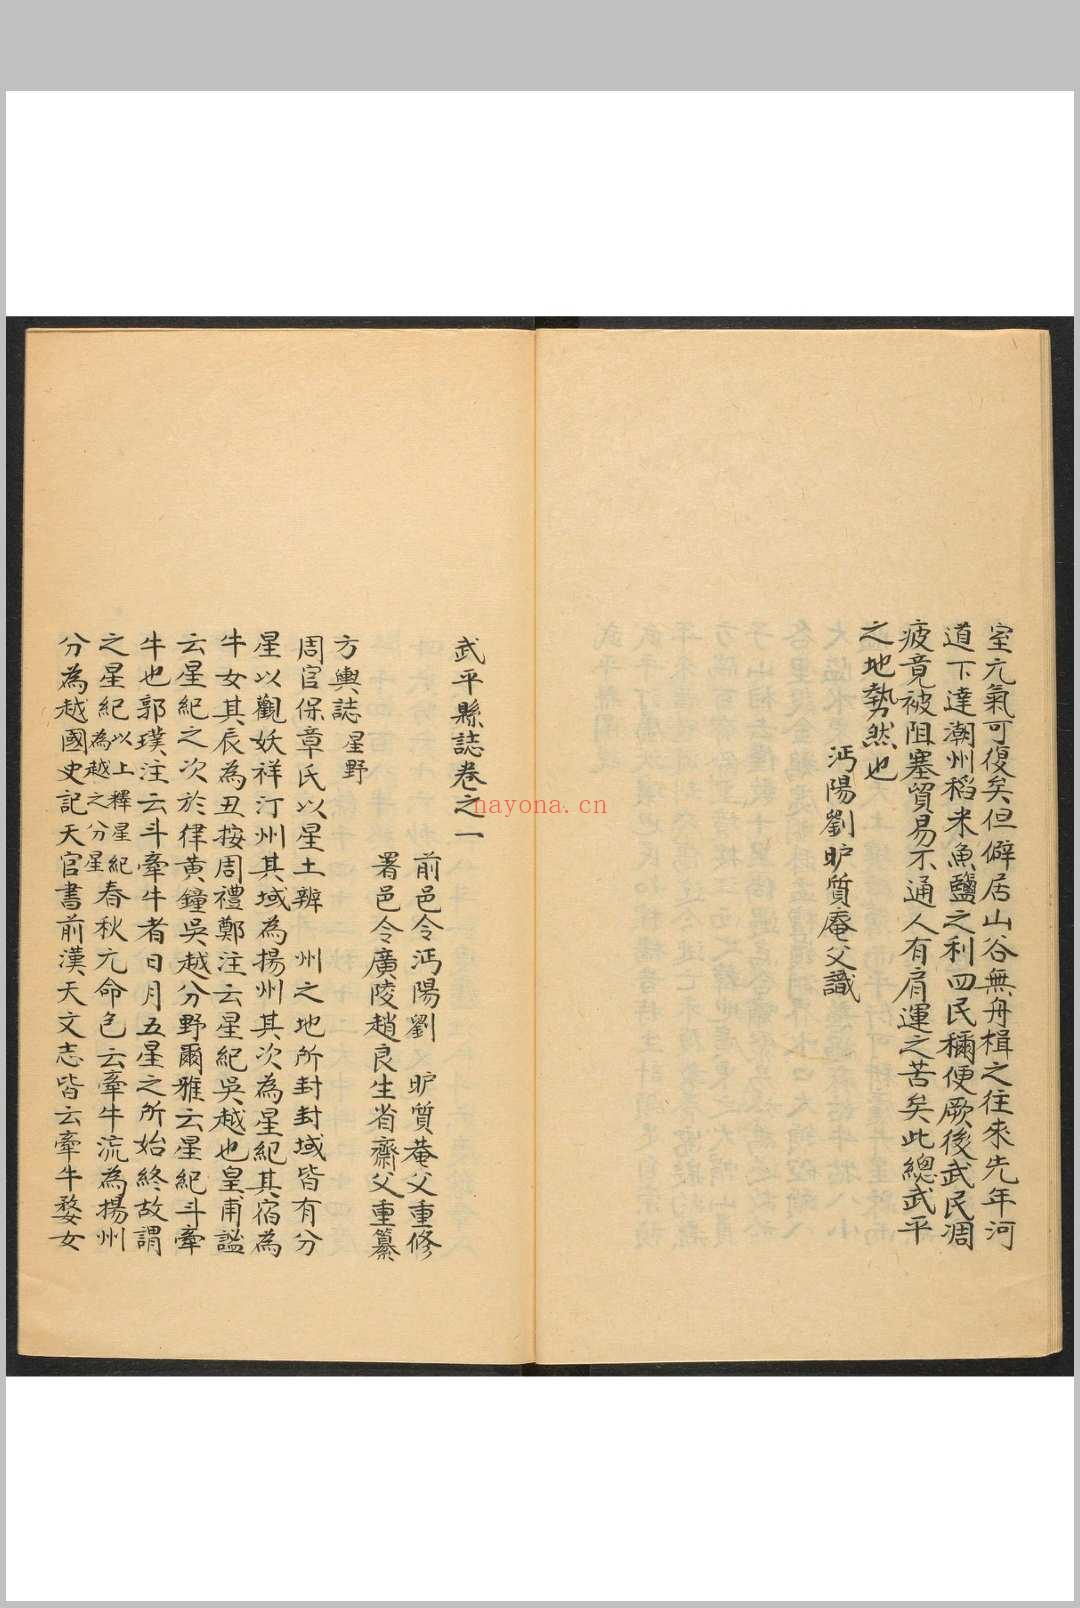 室元氣可復矣但僻居山谷無舟楫之往來先年河
道下達潮州稻米魚鹽之利四民稱便厥後武民凋
疲竟被阻塞貿易不通人有肩運之苦矣此總武平
之地勢然也
沔陽劉旷質庵父識
武平縣誌卷之一
前邑令沔陽劉 旷質菴父重修
署邑令廣陵趙良生省齋父重纂
方輿誌 星野
周官保章氏以星土辨 州之地所封封域皆有分
星以觀妖祥汀州其域為揚州其次為星紀其宿為
牛女其辰為丑按周禮鄭注云星紀吳越也皇甫謐
云星紀之次於律黃鐘吳越分野爾雅云星紀斗牽
牛也郭璞注云斗牽牛者日月五星之所始終故謂
之星紀以上釋星紀為越之分星春秋元命包云牽牛流為揚州
分為越國史記天官書前漢天文志皆云牽牛婺女
nayona.cn